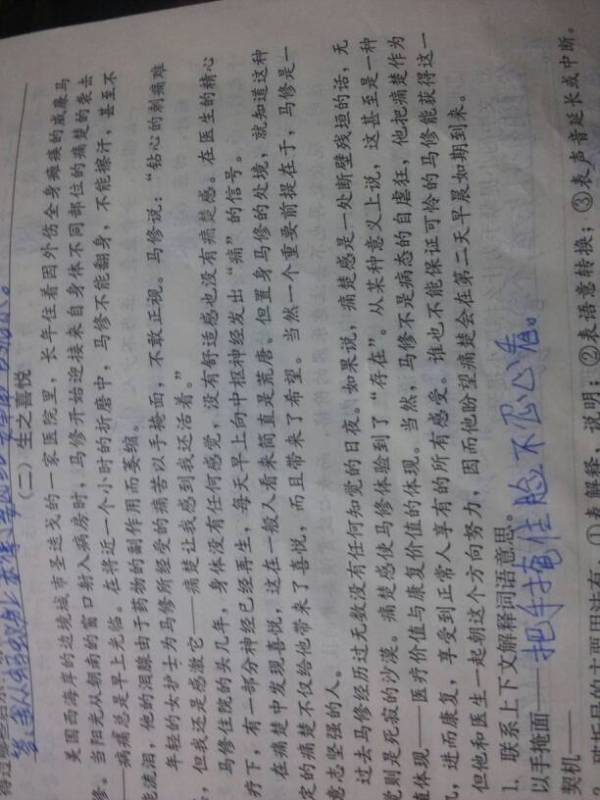 (二)生之喜悦
美国西海岸的边境城市圣迭戈的一家医院里,长年住着因外伤全身瘫痪的威廉马
修。当阳光从朝南的窗口射入病房时,马修开始迎接来自身体不同部位的痛楚的袭击
——病痛总是早上光临。在将近一个小时的折磨中,马修不能翻身,不能擦汗,甚至不
能流泪,他的泪腺由于药物的副作用而萎缩。
年轻的女护士为马修所经受的痛苦以手掩面,不敢正视。马修说:“钻心的刺痛难
,但我还是感激它——痛楚让我感到我还活着。”
马修住院的头几年,身体没有任何感觉,没有舒适感也没有痛楚感。在医生的精心
疗下,有一部分神经已经再生,每天早上向中枢神经发出“痛”的信号。
在痛楚中发现喜悦,这在一般人看来简直是荒唐。但置身马修的处境,就知道这种
定的痛楚不仅给他带来了喜悦,而且带来了希望。当然一个重要前提在于,马修是一
意志坚强的人。
过去马修经历过无数没有任何知觉的日夜。如果说,痛楚感是一处断壁残垣的话,无
觉则是死寂的沙漠。痛楚感使马修体验到了“存在”。从某种意义上说,这甚至是一种
值体现——医疗价值与康复价值的体现。当然,马修不是病态的自虐狂,他把痛楚作为
,进而康复,享受到正常人享有的所有感受。谁也不能保证可怜的马修能获得这一
但他和医生一起朝这个方向努力,因而他盼望痛楚会在第二天早晨如期到来。
1. 联系上下文解释词语意思。
以手掩面——把手掩住脸不忍心看。
契机——
①表解释,说明;②表语意转换;③表声音延长或中断。